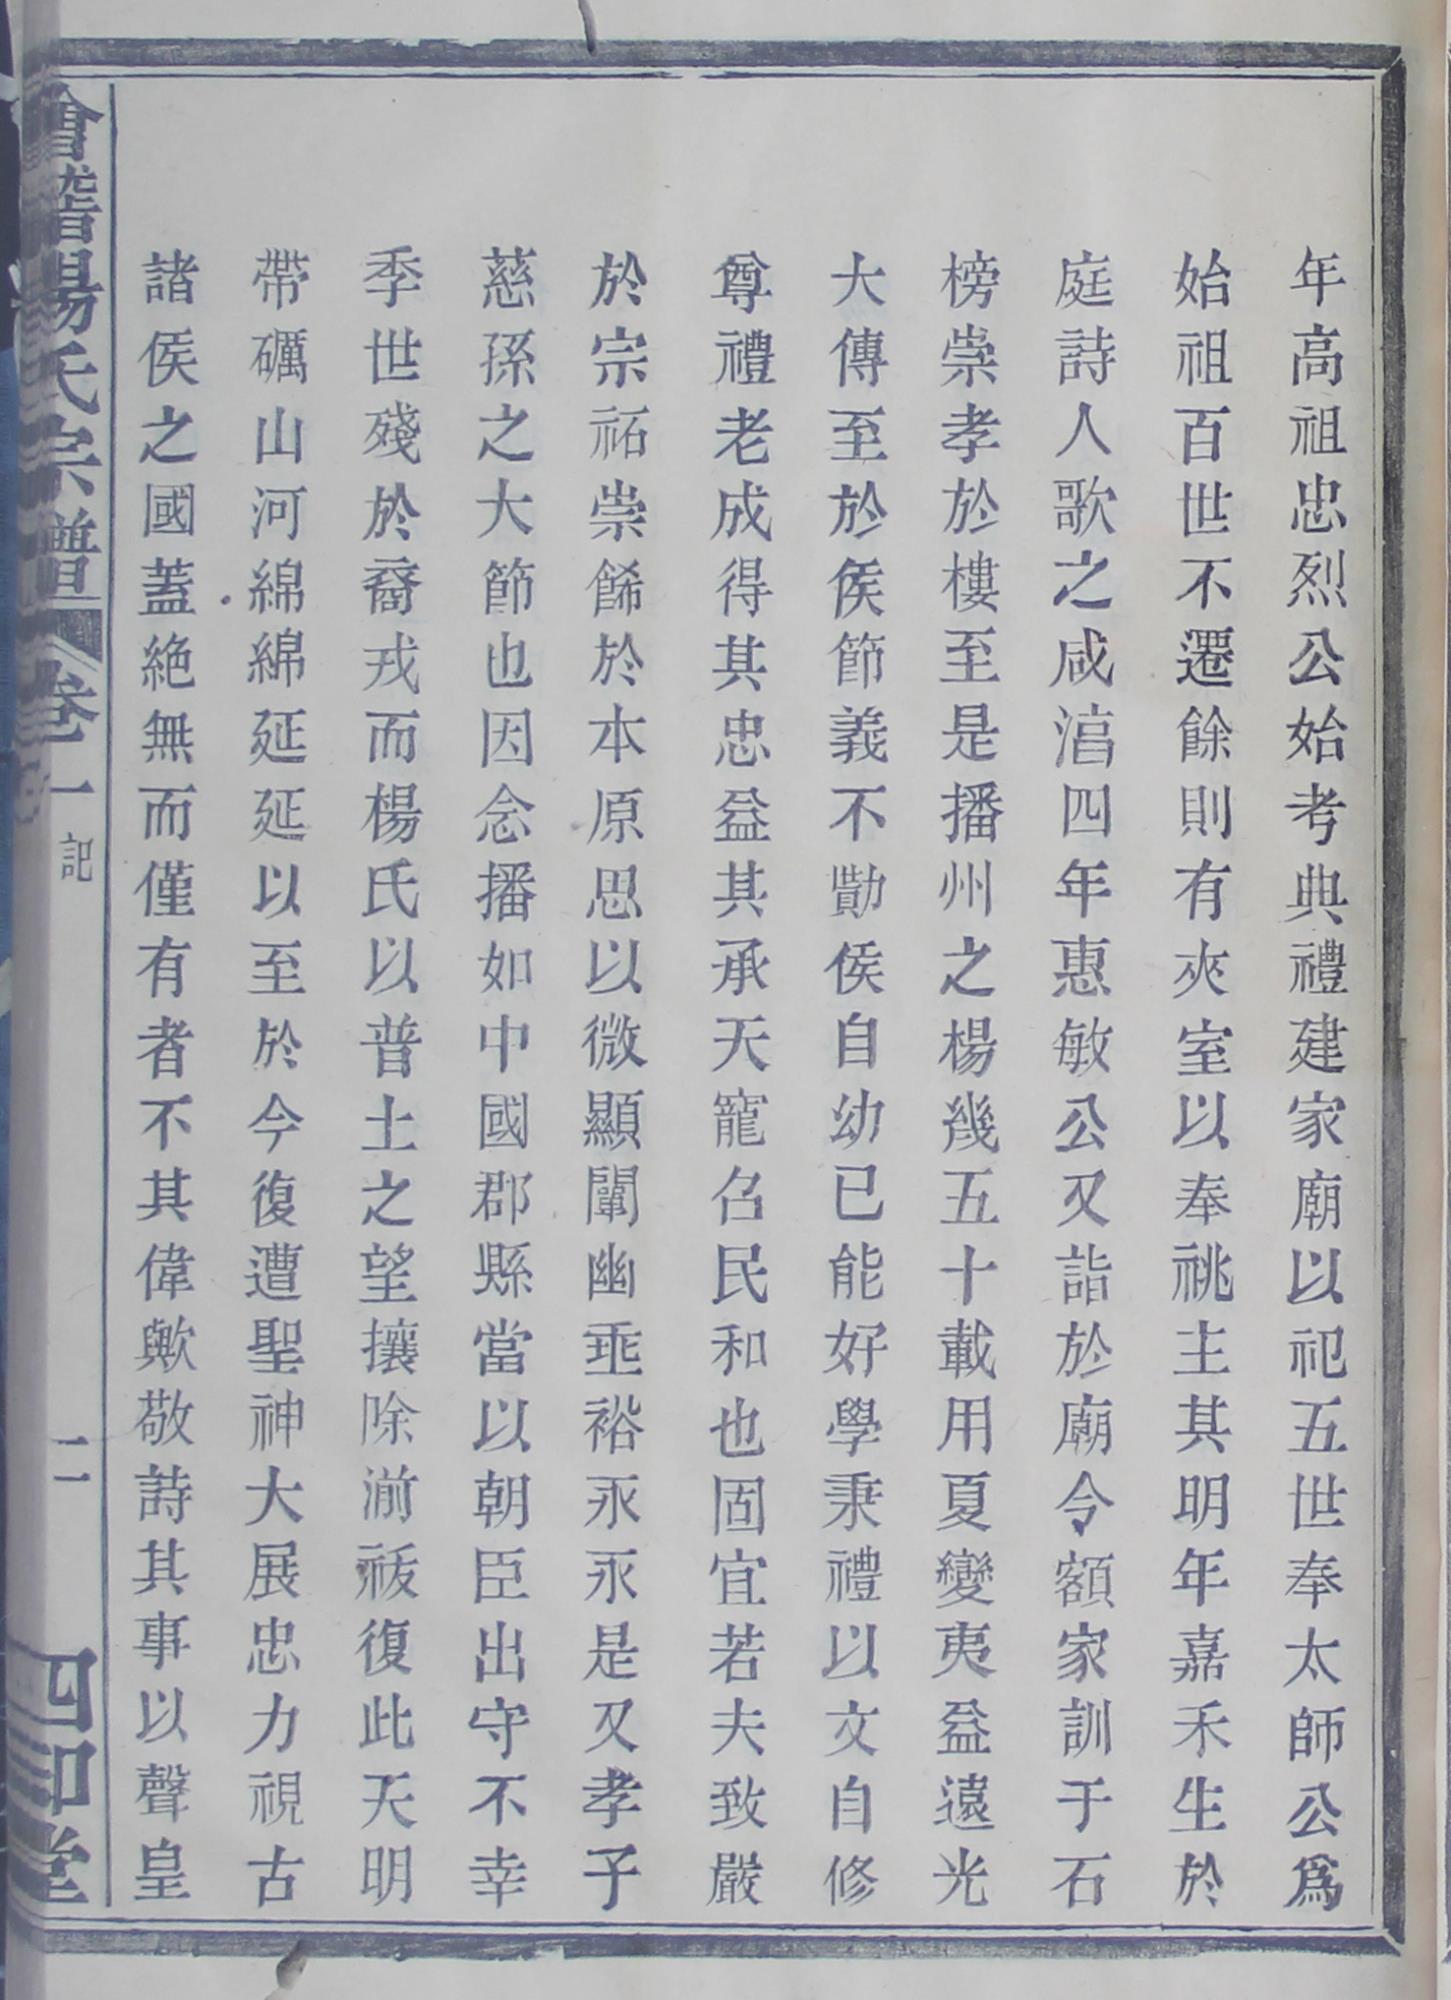 年高祖忠烈公始考典禮建家廟以祀五世奉太師公爲
始祖百世不遷餘則有夾室以奉祧主其明年嘉禾生於
庭詩人歌之咸淳四年惠敏公又詣於廟令額家訓于石
榜崇孝於樓至是播州之楊幾五十載用夏變夷益遠光
大傳至於侯節義不勩侯自幼已能好學秉禮以文自修
尊禮老成得其忠益其承天寵召民和也固宜若夫致嚴
於宗祏崇餙於本原思以微顯闡幽垂裕永永是又孝子
慈孫之大節也因念播如中國郡縣當以朝臣出守不幸
季世殘於裔戎而楊氏以普土之望攘除湔祓復此天明
帶礪山河綿綿延延以至於今復遭聖神大展忠力視古
諸侯之國蓋絶無而僅有者不其偉歟敬詩其事以聲皇
會稽楊氏宗譜 卷一 記 二 四知堂